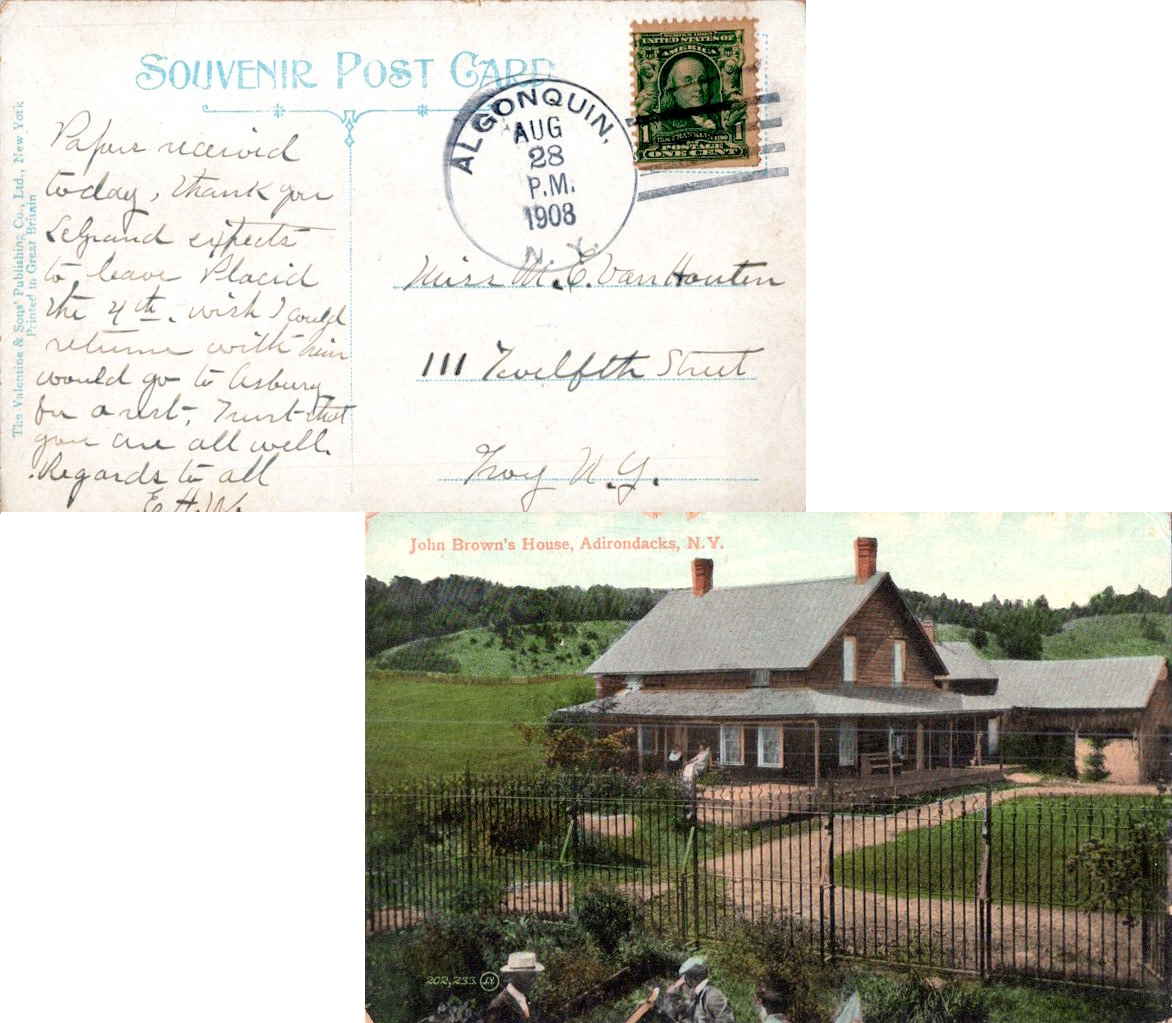 SOUVENIR POST CARD
The Valentine & Sons' Publishing Co., Ltd., New York
Printed in Great Britain
UNITED STATES OF
AMERICA
1 1
POSTAGE
ONE CENT
ALGONQUIN,
AUG
28
P.M.
1908
N. Y.
Papers received
today, thank you
LeGrand expects
to leave Placid
the 4th. wish I could
returne with him
would go to Asbury
for a rest, Trust that
you are all well.
Regards to all
E.H.W.
Miss M. E. Van Houten
111 Twelfth Street
Troy N.Y.
John Brown's House, Adirondacks, N.Y.
202,233 JV